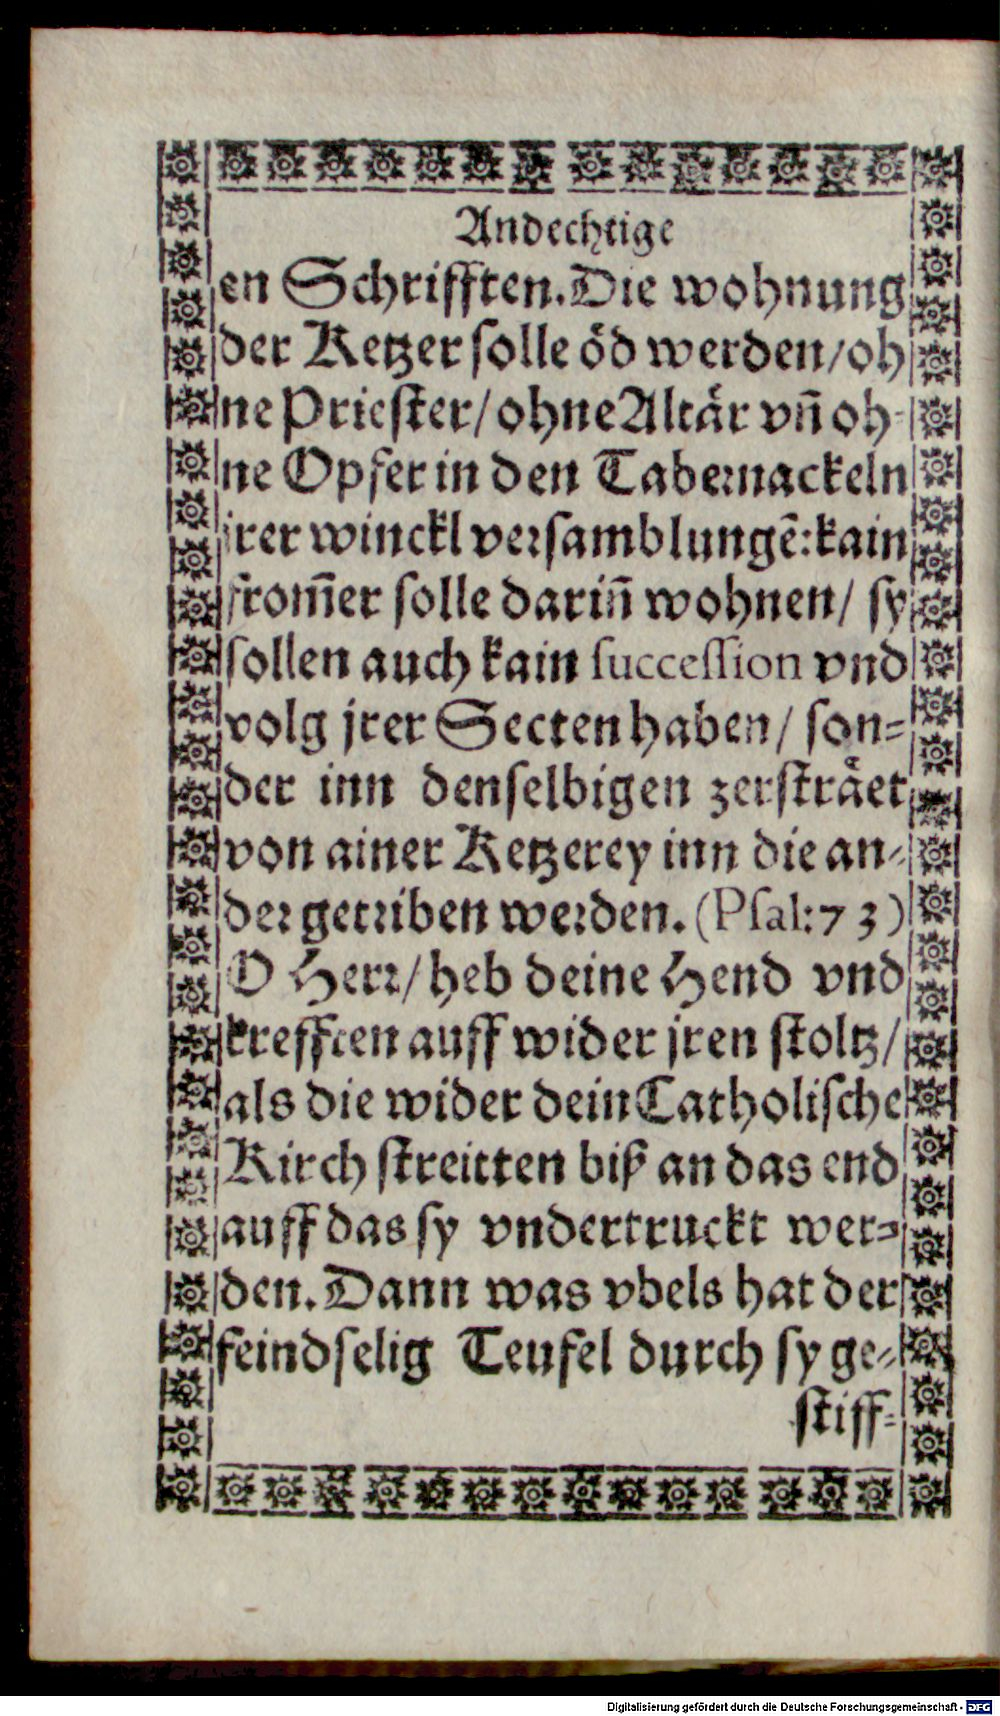 Andechtige
en Schrifften. Die wohnung
der Ketzer solle öd werden/ oh
ne Priester/ ohne Altär vñ oh-
ne Opfer in den Tabernackeln
jrer winckl versamblungẽ: kain
from̃er solle dariñ wohnen/ sy
sollen auch kain succession vnd
volg jrer Secten haben/ son-
der inn denselbigen zersträet
von ainer Ketzerey inn die an-
der getriben werden. (Psal: 73)
O Herr/ heb deine Hend vnd
krefften auff wider jren stoltz/
als die wider dein Catholische
Kirch streitten biß an das end
auff das sy vndertruckt wer-
den. Dann was vbels hat der
feindselig Teufel durch sy ge-
stiff-
Digitalisierung gefördert durch die Deutsche Forschungsgemeinschaft - DFG